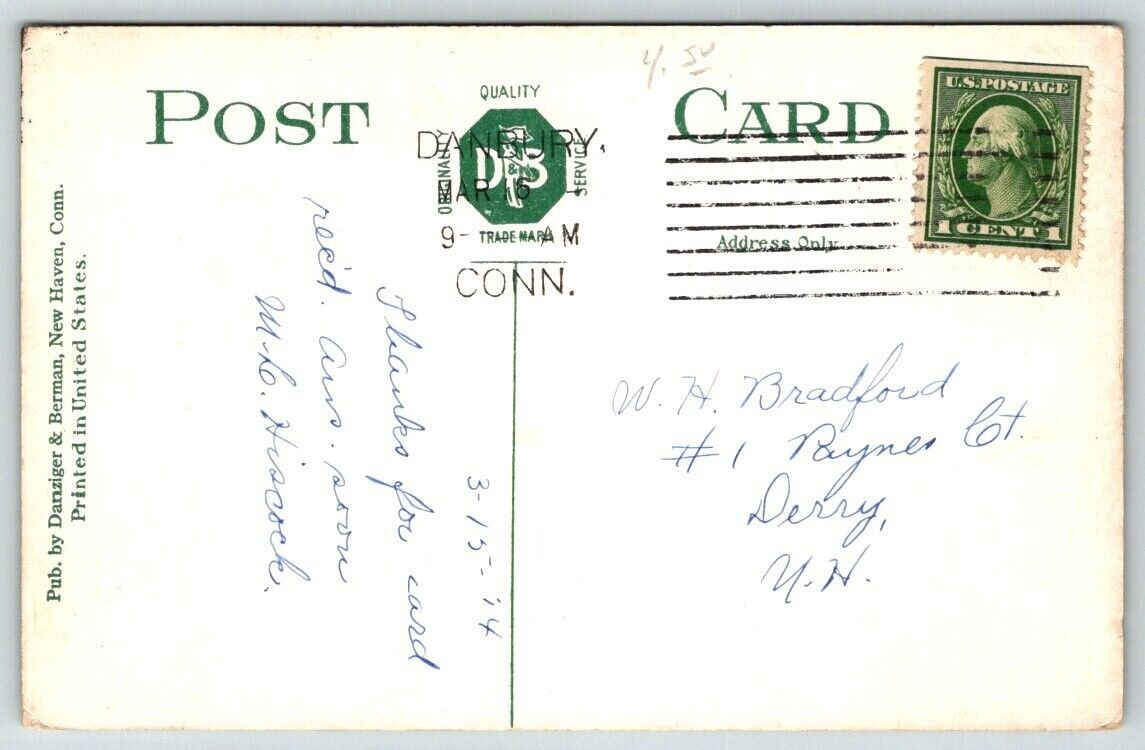 4.50
POST CARD
QUALITY
ORIGINALITY
D&B
SERVICE
TRADE MARK
DANBURY,
MAR 16
9- AM
CONN.
U.S. POSTAGE
1 CENT 1
Address Only
Pub. by Danziger & Berman, New Haven, Conn.
Printed in United States.
3-15-'14
Thanks for card
rec'd. ans. soon
M.L. Hiscock.
W. H. Bradford
#1 Paynes Ct.
Derry,
N.H.